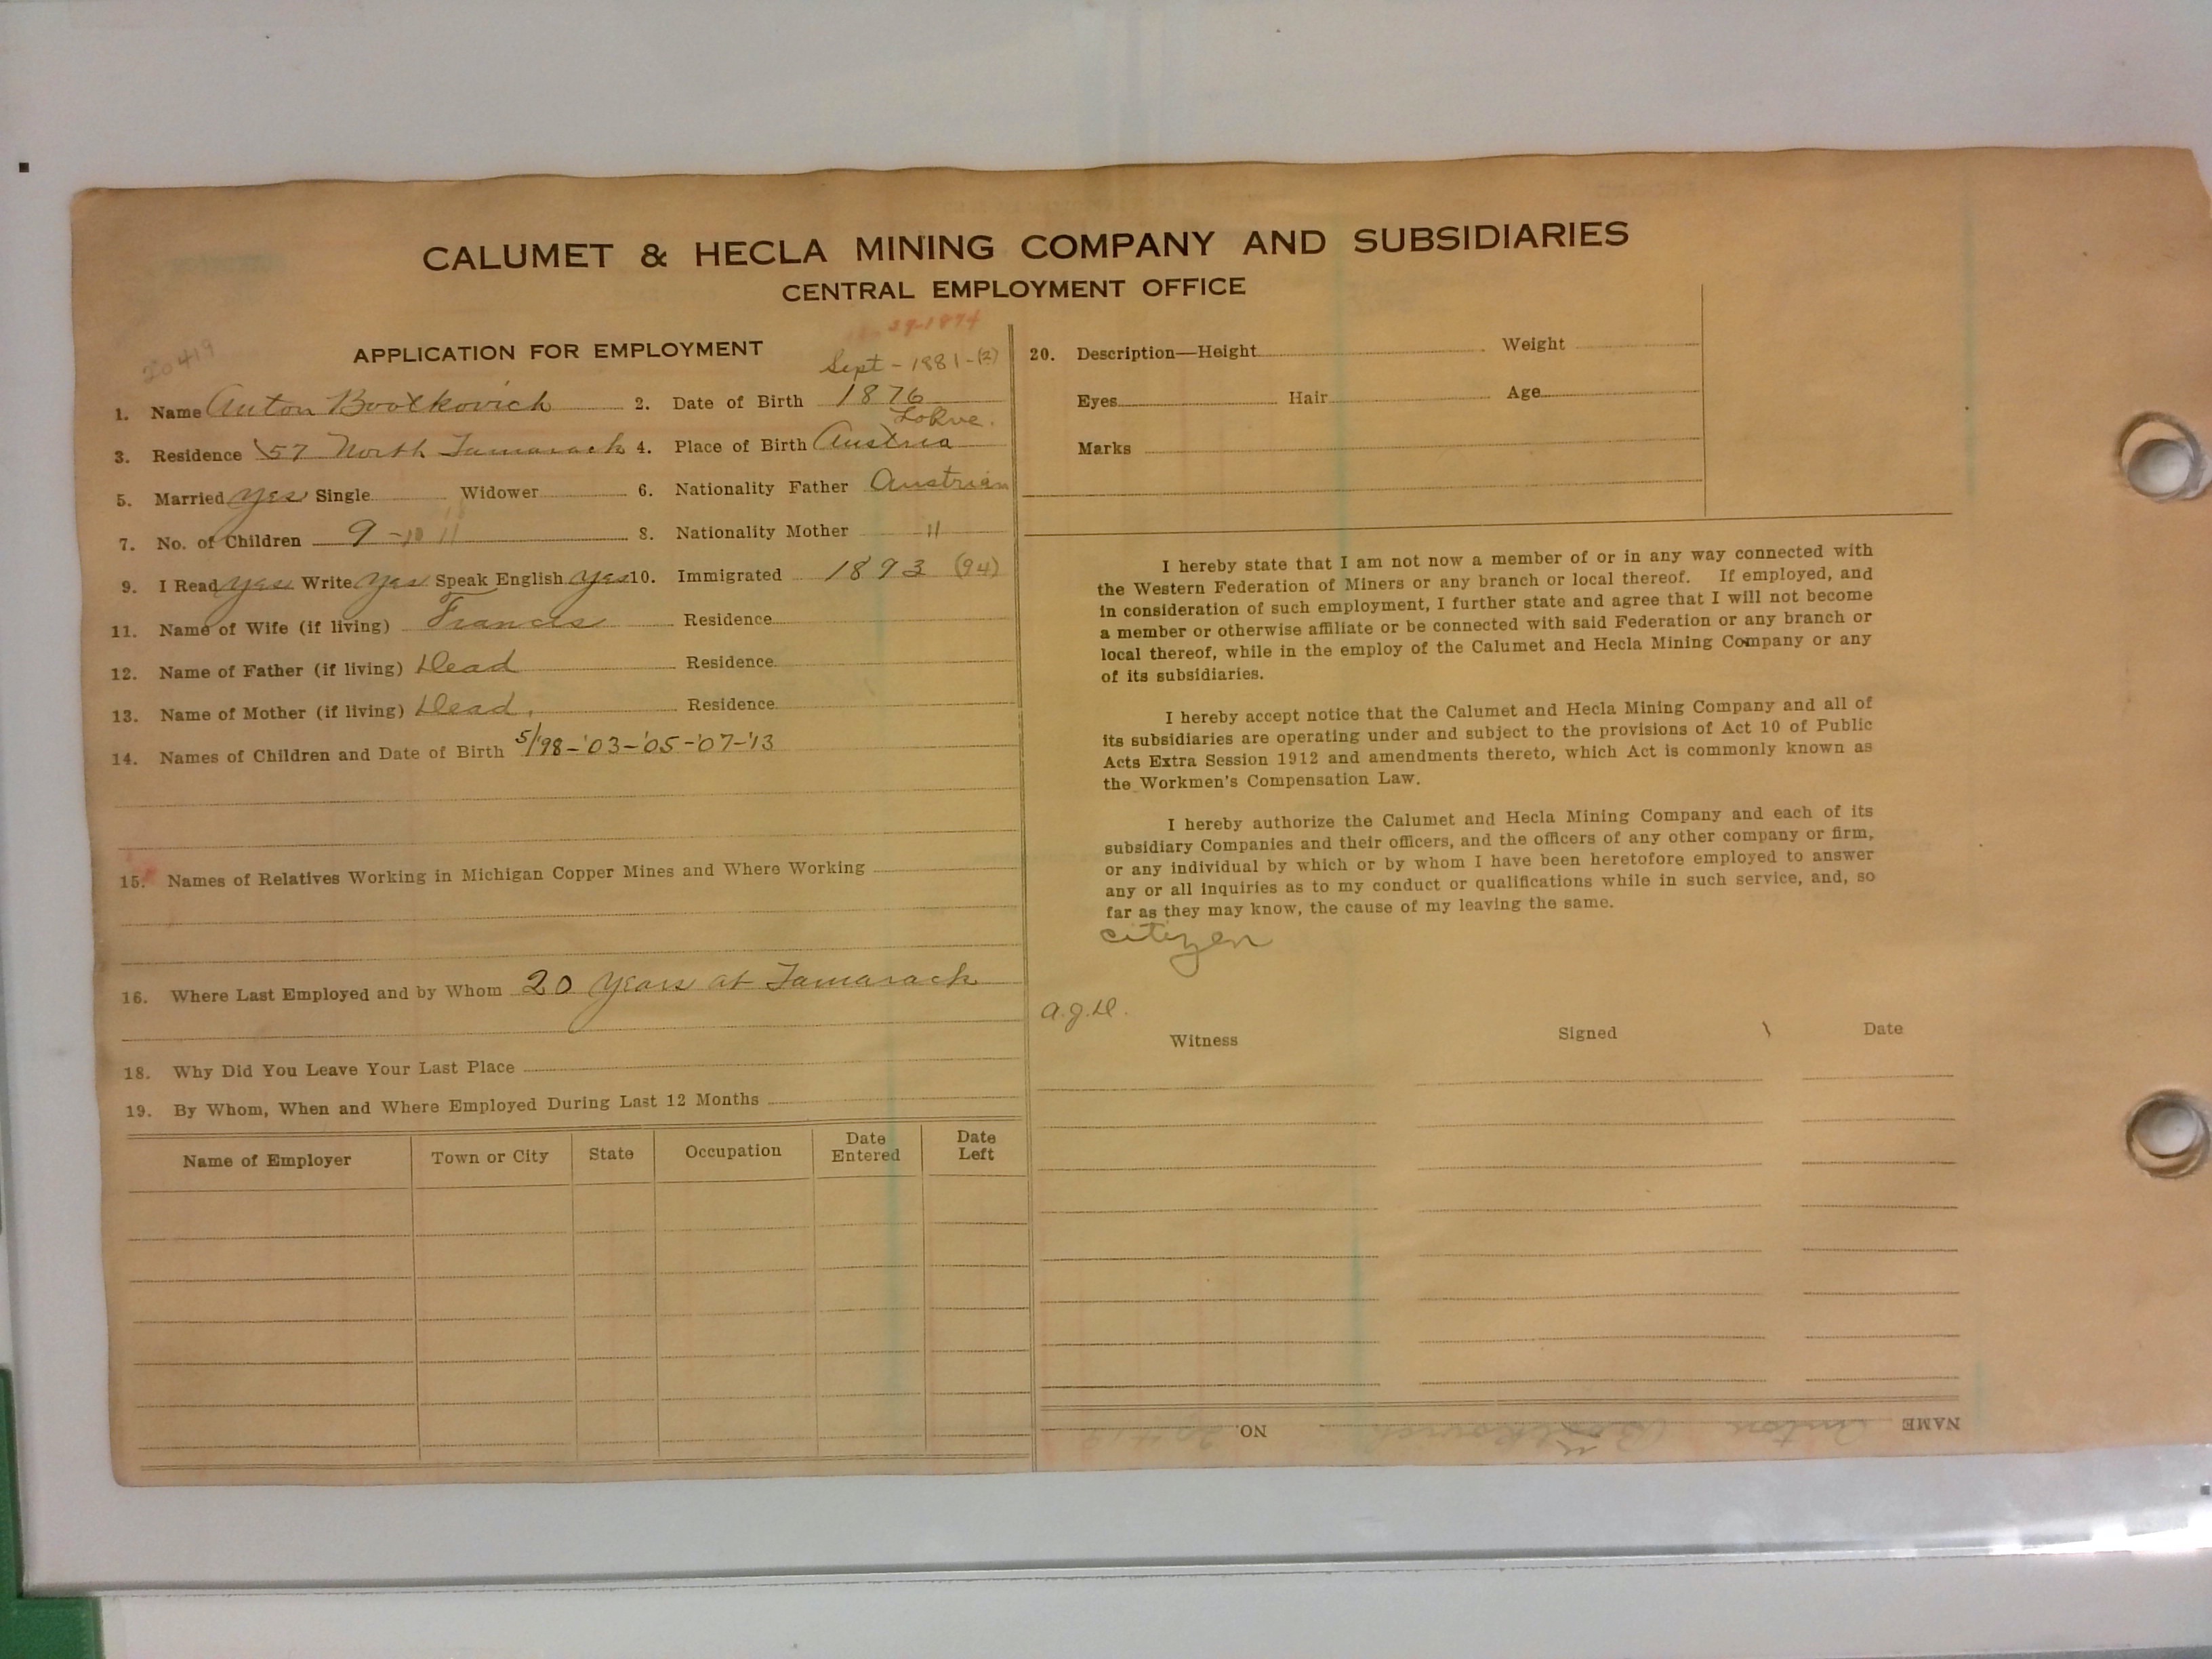 CALUMET & HECLA MINING COMPANY AND SUBSIDIARIES
CENTRAL EMPLOYMENT OFFICE
20419
APPLICATION FOR EMPLOYMENT
29-1874
Sept - 1881-(2)
1. Name Anton Bootkovich 2. Date of Birth 1876
Lokve.
3. Residence 57 North Tamarack 4. Place of Birth Austria
5. Married Yes Single Widower 6. Nationality Father Austrian
7. No. of Children 9 - 10 11 8. Nationality Mother "
9. I Read yes Write yes Speak English yes 10. Immigrated 1893 (94)
11. Name of Wife (if living) Francis Residence
12. Name of Father (if living) Dead Residence
13. Name of Mother (if living) Dead. Residence
14. Names of Children and Date of Birth 5/'98-'03-'05-'07-'13
15. Names of Relatives Working in Michigan Copper Mines and Where Working
16. Where Last Employed and by Whom 20 years at Tamarack
18. Why Did You Leave Your Last Place
19. By Whom, When and Where Employed During Last 12 Months
Name of Employer Town or City State Occupation Date Entered Date Left
20. Description—Height Weight
Eyes Hair Age
Marks
I hereby state that I am not now a member of or in any way connected with
the Western Federation of Miners or any branch or local thereof. If employed, and
in consideration of such employment, I further state and agree that I will not become
a member or otherwise affiliate or be connected with said Federation or any branch or
local thereof, while in the employ of the Calumet and Hecla Mining Company or any
of its subsidiaries.
I hereby accept notice that the Calumet and Hecla Mining Company and all of
its subsidiaries are operating under and subject to the provisions of Act 10 of Public
Acts Extra Session 1912 and amendments thereto, which Act is commonly known as
the Workmen's Compensation Law.
I hereby authorize the Calumet and Hecla Mining Company and each of its
subsidiary Companies and their officers, and the officers of any other company or firm,
or any individual by which or by whom I have been heretofore employed to answer
any or all inquiries as to my conduct or qualifications while in such service, and, so
far as they may know, the cause of my leaving the same.
citizen
a.g.D.
Witness Signed Date
NAME Anton Bootkovich NO. 20419